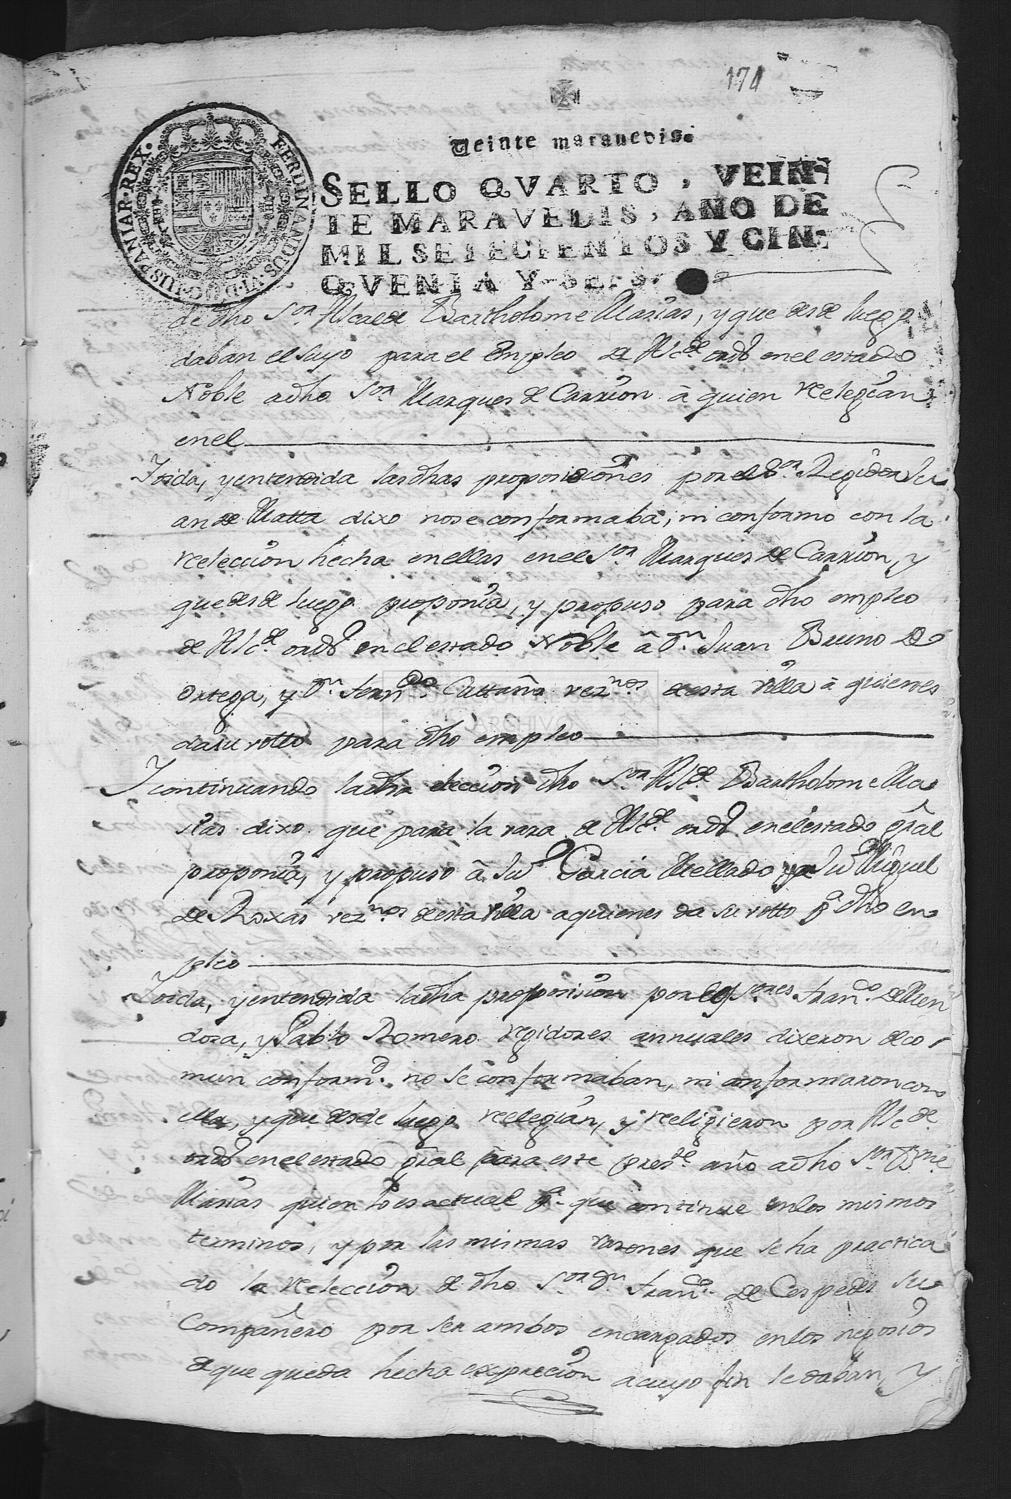 174
Veinte marauedis.
SELLO QVARTO, VEIN-
TE MARAVEDIS, AÑO DE
MIL SETECIENTOS Y CIN-
QVENTA Y SEIS.
FERDINANDUS VI D.G. HISPANIAR. REX.
de dho Sor. Alcalde Bartholome Marias, y que desde luego
daban el suyo para el Empleo de Alcde. ordo. en el estado
Noble a dho Sor Marques de Carrion â quien reelegian
en el
Ioida, y entendida las dhas proposiciones por el Sor. Regidor Ju
an de Matta dixo no se conformaba, ni conformo con la
relección hecha en ellas en el Sor Marques de Carrion, y
que desde luego proponia, y propuso para dho empleo
de Alcde. ordo. en el estado Noble â Dn. Juan Bruno de
Ortega, y Dn. Fernando Cattaño veznos de esta villa â quienes
da su votto para dho empleo
I continuando la dha eleccion dho Sor Alcde. Bartholome Ma
rias dixo que para la vara de Alcde. ordo. en el estado gral
proponia, y propuso â Juo. Garcia Mellado y a Juo Miguel
de Roxas veznos de esta villa a quienes da su votto pa. dho en
pleo
Ioida, y entendida la dha proposision por los Sores Franco. de Men
doza, y Pablo Romero regidores annuales dixeron de co
mun conformd. no se conformaban, ni conformaron con
ella, y que desde luego reelegian, y religieron por Alcde.
ordo en el estado gral para este preste. año a dho Sor Bme
Marias quien lo es actual pa. que continue en los mismos
terminos, y por las mismas razones que se ha practica
do la relección de dho Sor Dn. Franco. de Cespedes su
Compañero por ser ambos encargados en los negosios
de que queda hecha expreción a cuyo fin le daban, y